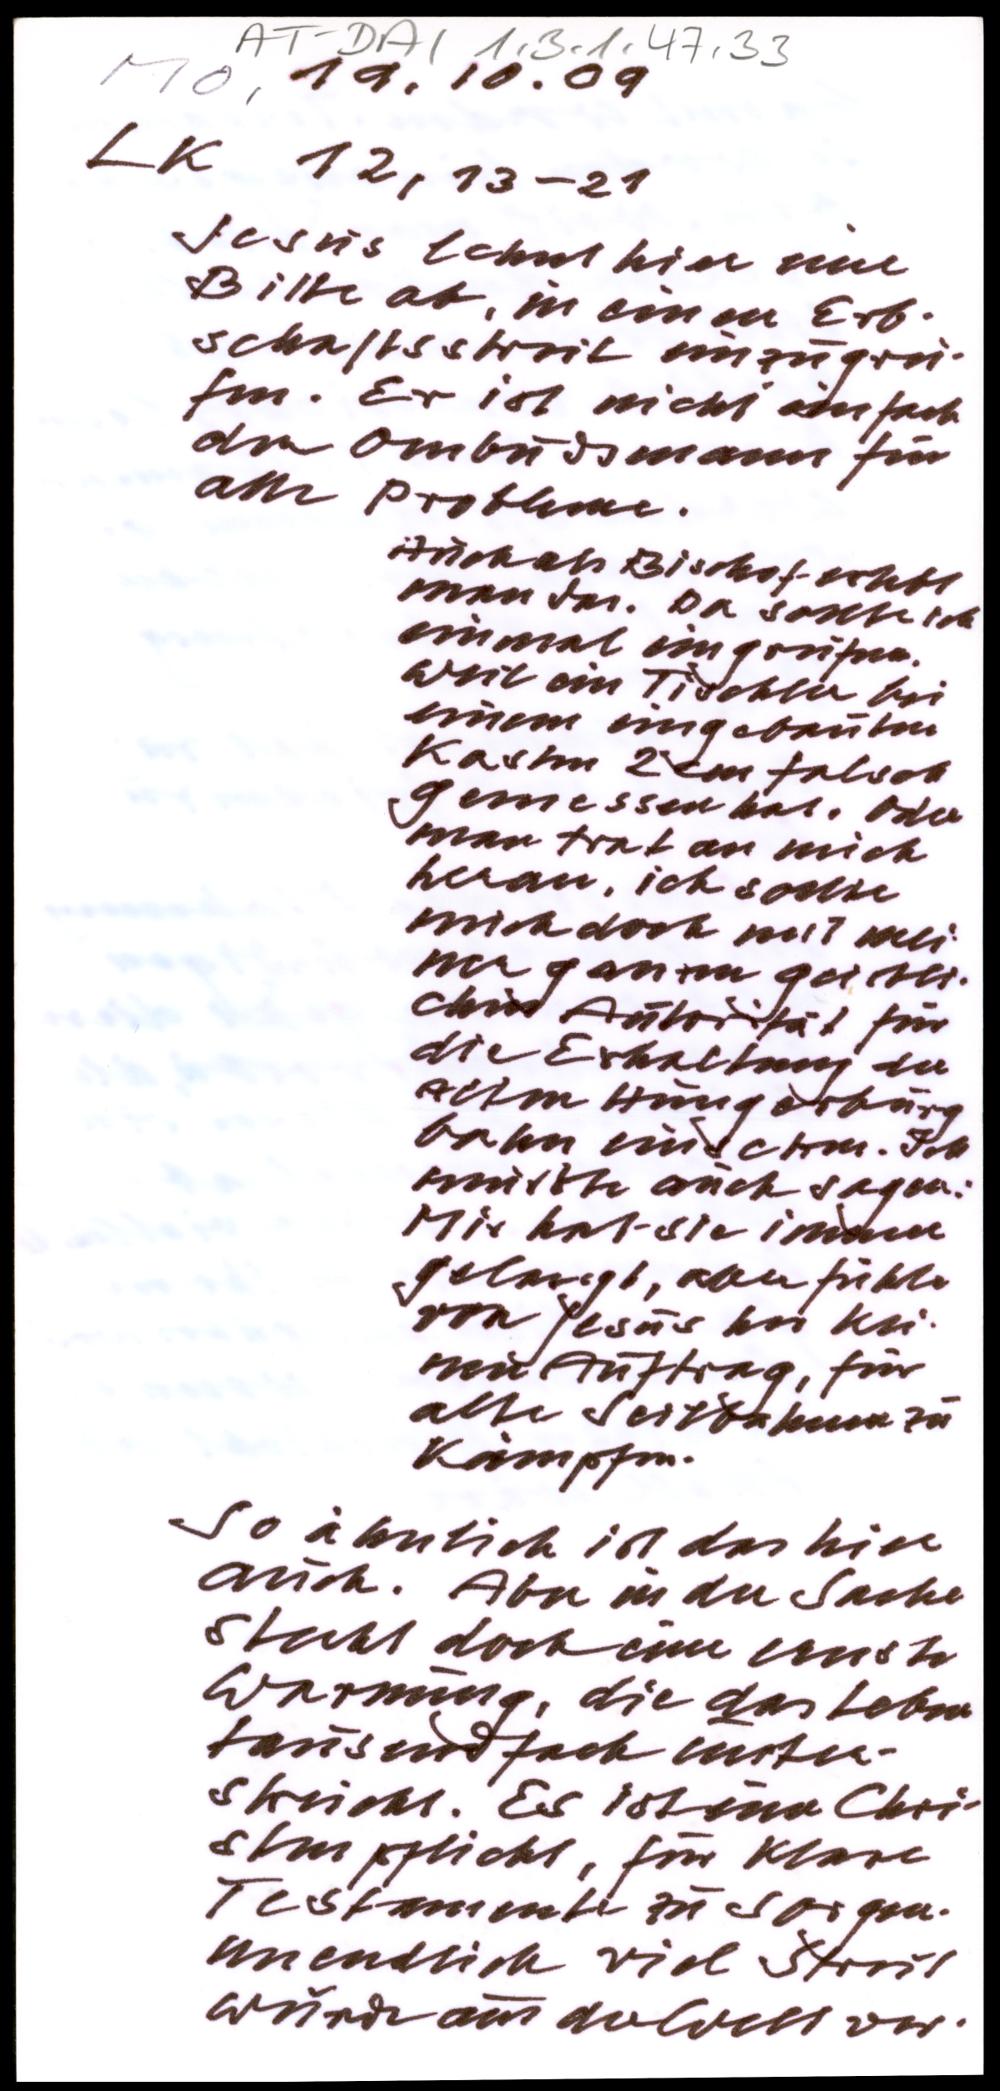 AT-DAI 1.3.1.47.33
Mo, 19.10.09
LK 12, 13-21
Jesus lehnt hier eine
Bitte ab, in einem Erb-
schaftsstreit einzugrei-
fen. Er ist nicht einfach
der Ombudsmann für
alle Probleme.
Auch als Bischof erlebt
man das. Da sollte ich
einmal eingreifen,
weil ein Tischler bei
einem eingebauten
Kasten 2 cm falsch
gemessen hat. Oder
man trat an mich
heran, ich sollte
mich doch mit mei-
ner ganzen geistli-
chen Autorität für
die Erhaltung der
Alten Hungerburg
bahn einsetzen. Ich
musste auch sagen:
Mir hat sie immer
gelangt, aber fühle
von Jesus her kei-
nen Auftrag, für
alte Seilbahnen zu
kämpfen.
So ähnlich ist das hier
auch. Aber in der Sache
steckt doch eine ernste
Warnung, die das Leben
tausendfach unter-
streicht. Es ist eine Chri-
stenpflicht, für klare
Testamente zu sorgen.
Unendlich viel Streit
würde aus der Welt ver-